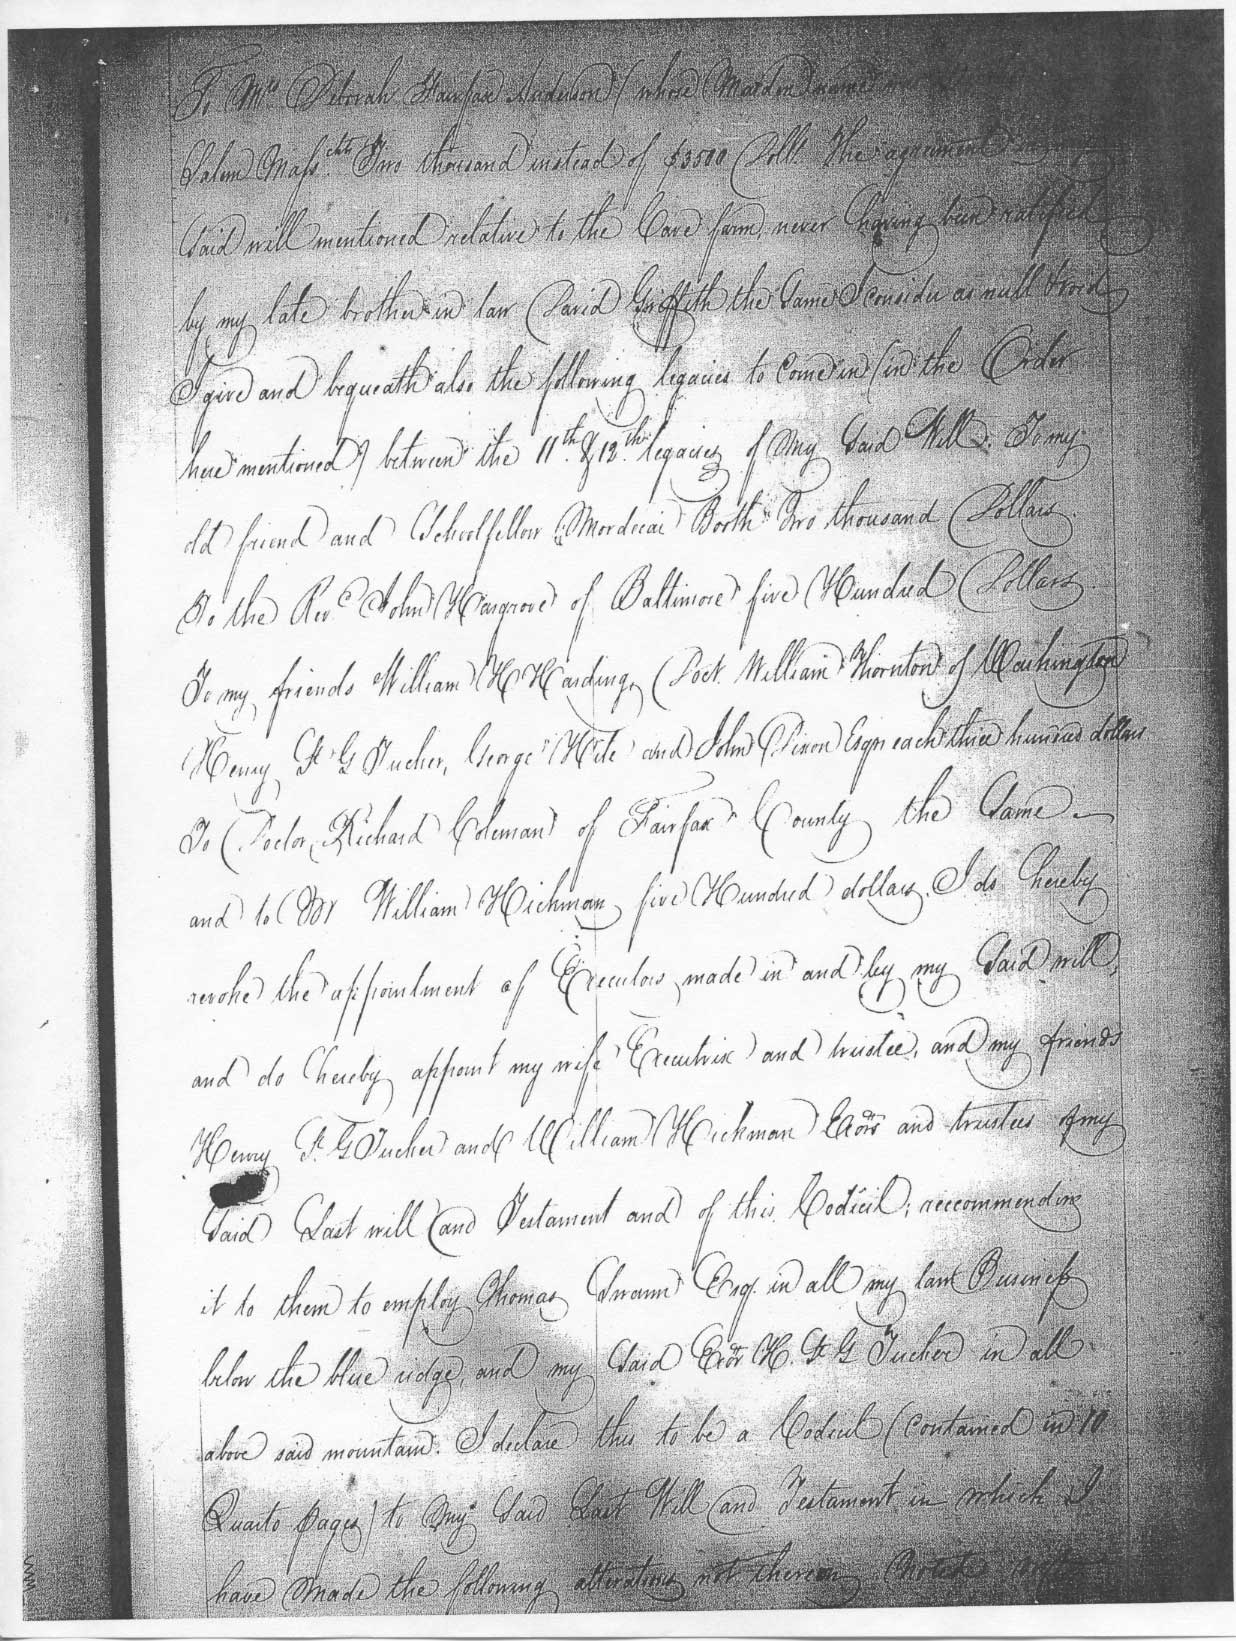 To Mrs Deborah Fairfax Anderson (whose Maiden name
Salem Masschts Two thousand instead of $3500 Dolls. The agreement in my
said will mentioned relative to the Cave farm never having been ratified
by my late brother in law David Griffith the Same I consider as null & void
I give and bequeath also the following legacies to come in (in the Order
here mentioned) between the 11th & 12th legacies of My Said Will. To my
old friend and Schoolfellow Mordecai Booth Two thousand Dollars.
To the Revd John Hargrove of Baltimore five Hundred Dollars
To my friends William H Harding, Doct. William Thornton of Washington
Henry St G Tucker, George Hite and John Dixon Esqrs each three hundred dollars
To Doctor Richard Coleman of Fairfax County the Same
and to Mr William Hickman five Hundred dollars. I do hereby
revoke the appointment of Executors made in and by my Said will,
and do hereby appoint my wife Executrix and trustee, and my friends
Henry St. G Tucker and William Hickman Exors and trustees of my
Said Last will and Testament and of this Codicil; reccommending
it to them to employ Thomas Swann Esq. in all my law Business
below the blue ridge, and my Said Exor H. St G Tucker in all
above said mountain. I declare this to be a Codicil (contained in 10
Quarto pages) to My Said Last Will and Testament in which I
have Made the following alterations not thereon Noted